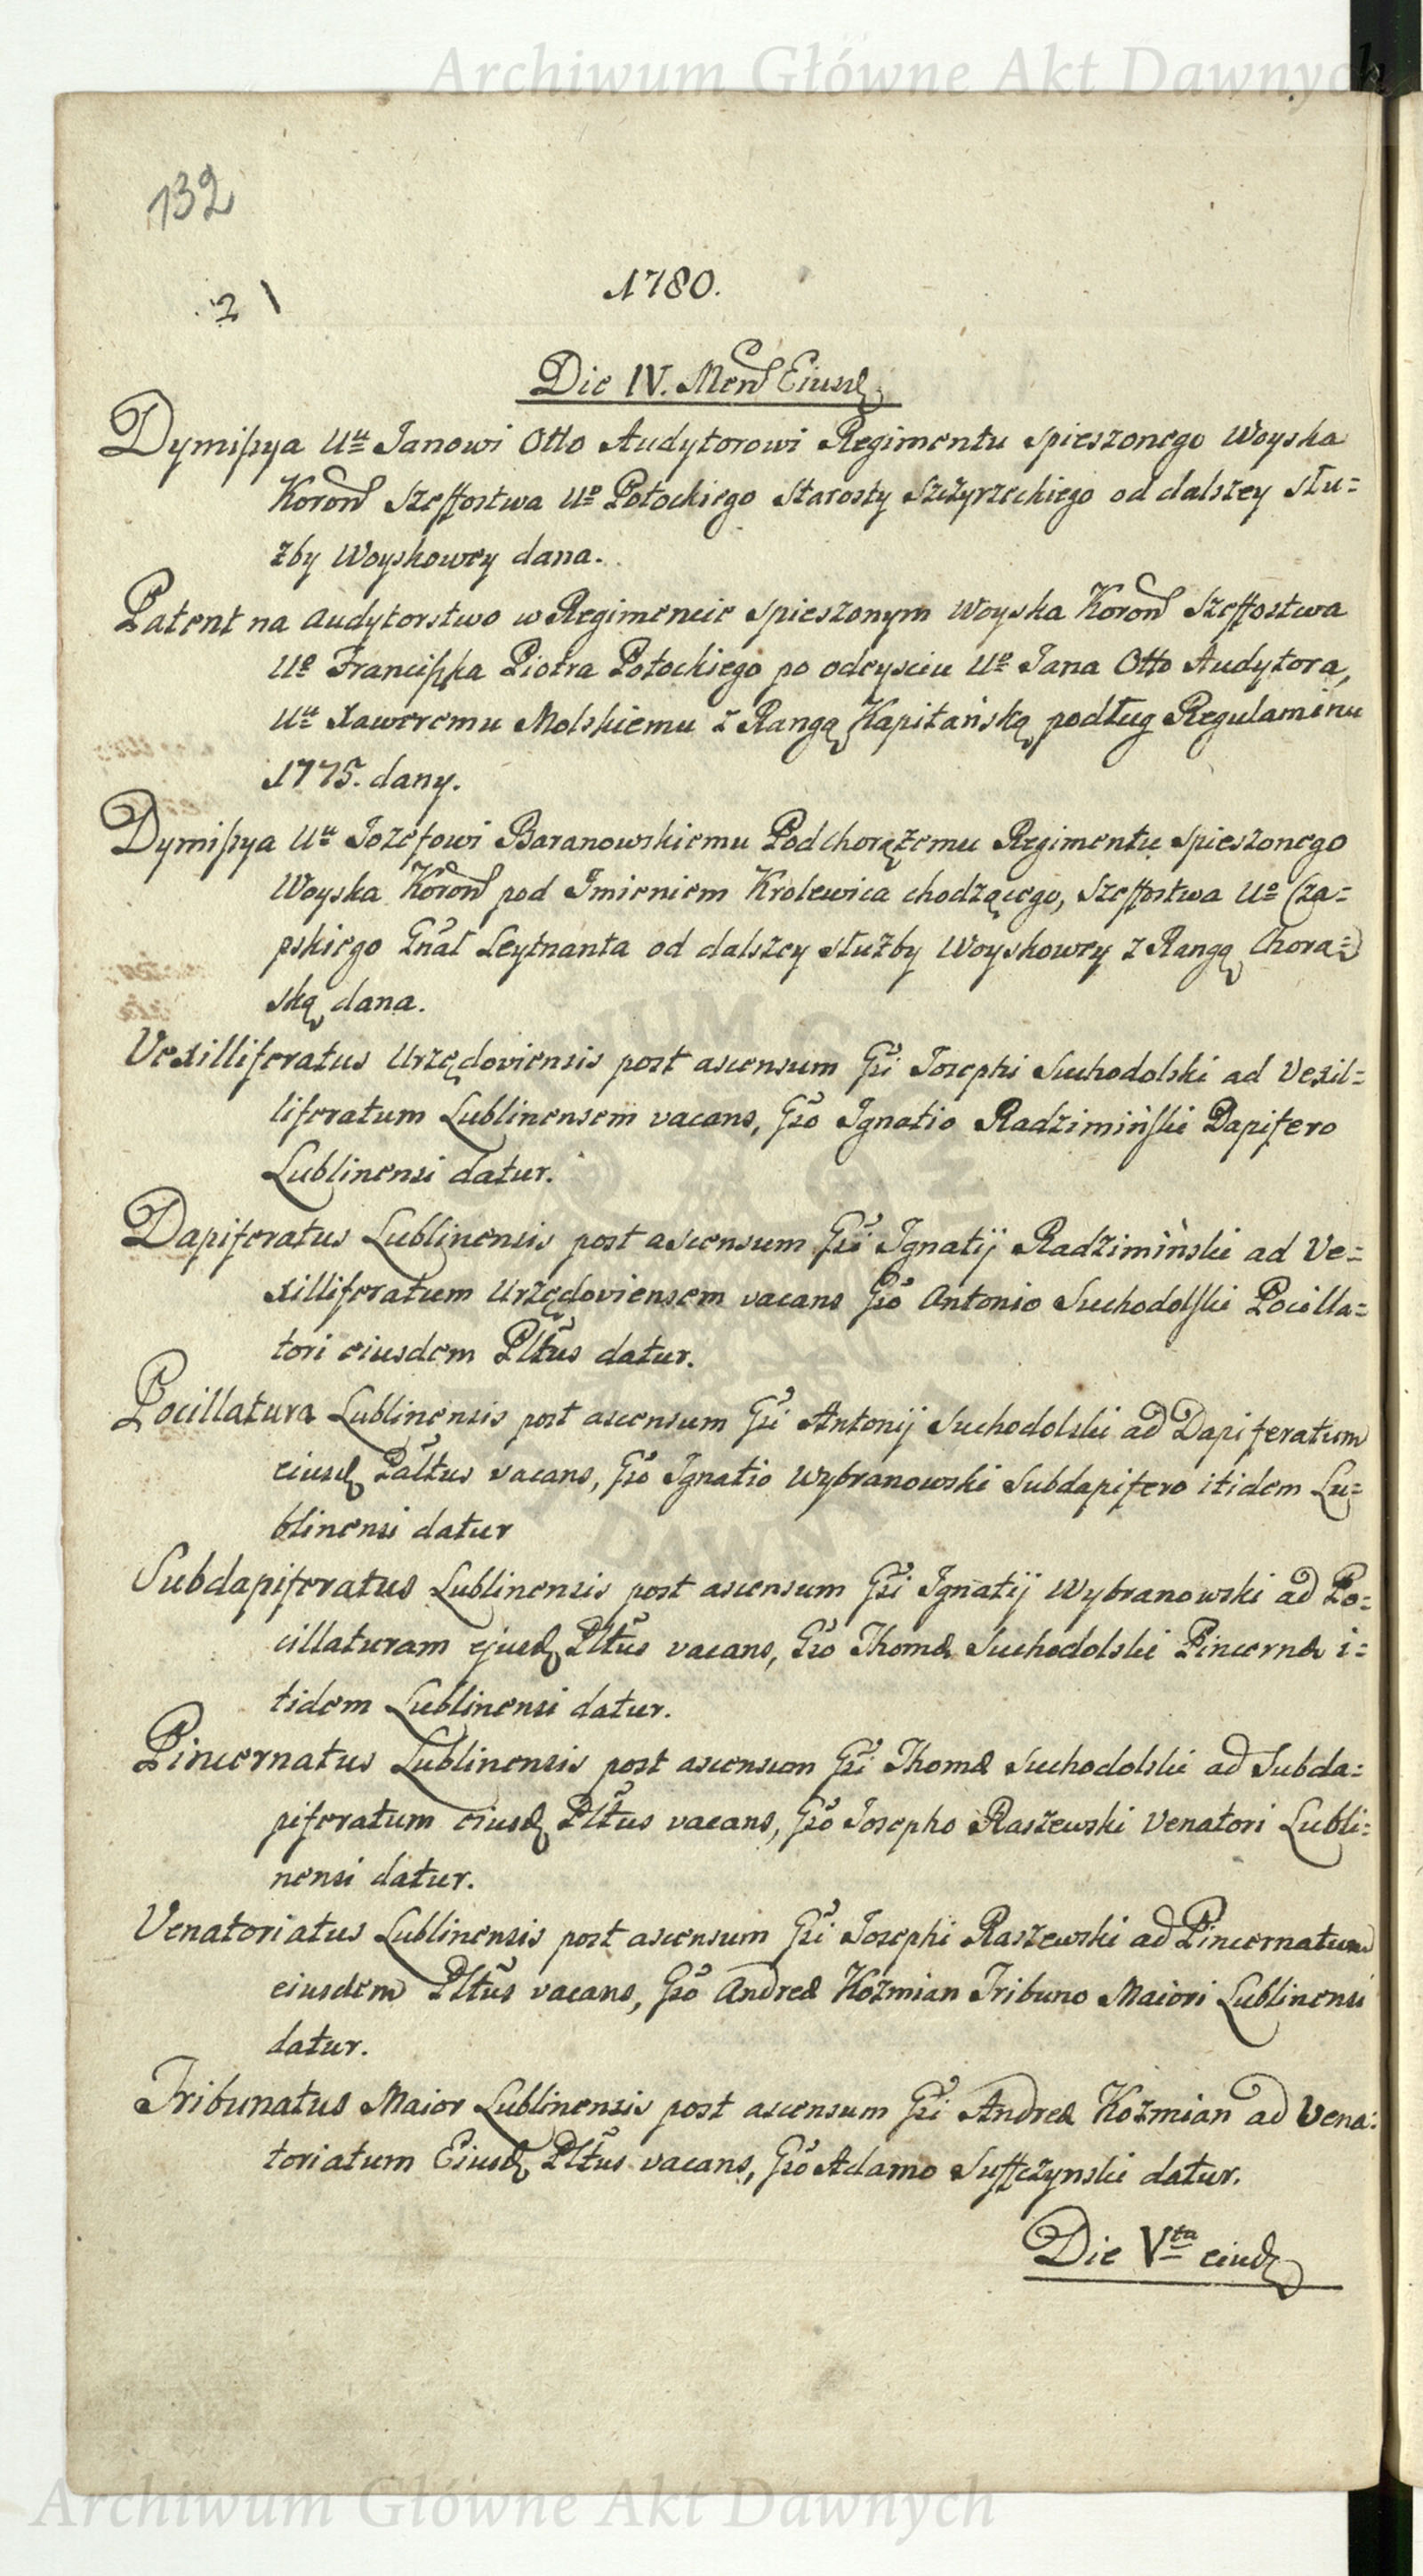 Archiwum Główne Akt Dawnych
132
1780.
Die IV. Men Eiusd
Dymissya Uu Janowi Otto Audytorowi Regimentu spieszonego Woyska
Koron Szeffostwa Uo Potockiego Starosty Szczyrzeckiego od dalszey słu=
zby Woyskowey dana.
Patent na audytorstwo w Regimencie spieszonym Woyska Koron Szeffostwa
Uo Franciszka Piotra Potockiego po odeysciu Uo Jana Otto Audytora,
Uu Xaweremu Molskiemu z Rangą Kapitańską podług Regulaminu
1775. dany.
Dymissya Uu Jozefowi Baranowskiemu Podchorążemu Regimentu spieszonego
Woyska Koron pod Imieniem Krolewica chodzącego, Szeffostwa Uo Cza=
pskiego Gnał Leytnanta od dalszey służby Woyskowey z Rangą Chora=
ską dana.
Vexilliferatus Urzędoviensis post ascensum Gsi Josephi Suchodolski ad Vexil=
liferatum Lublinensem vacans, Gso Ignatio Radzimiński Dapifero
Lublinensi datur.
Dapiferatus Lublinensis post ascensum Gsi Ignatij Radzimiński ad Ve=
xilliferatum Urzędoviensem vacans Gso Antonio Suchodolski Pocilla=
tori eiusdem Plttus datur.
Pocillatura Lublinensis post ascensum Gsi Antonij Suchodolski ad Dapiferatum
eiusd Palttus vacans, Gso Ignatio Wybranowski Subdapifero itidem Lu=
blinensi datur
Subdapiferatus Lublinensis post ascensum Gsi Ignatij Wybranowski ad Po=
cillaturam ejusd Plttus vacans, Gso Thomæ Suchodolski Pincernæ i=
tidem Lublinensi datur.
Pincernatus Lublinensis post ascensum Gsi Thomæ Suchodolski ad Subda=
piferatum eiusd Plttus vacans, Gso Josepho Raszewski Venatori Lubli=
nensi datur.
Venatoriatus Lublinensis post ascensum Gsi Josephi Raszewski ad Pincernatum
eiusdem Plttus vacans, Gso Andreæ Kozmian Tribuno Maiori Lublinensi
datur.
Tribunatus Maior Lublinensis post ascensum Gsi Andreæ Kozmian ad Vena=
toriatum Eiusd Plttus vacans, Gso Adamo Suffczynski datur.
Die Vta eiusd
Archiwum Główne Akt Dawnych